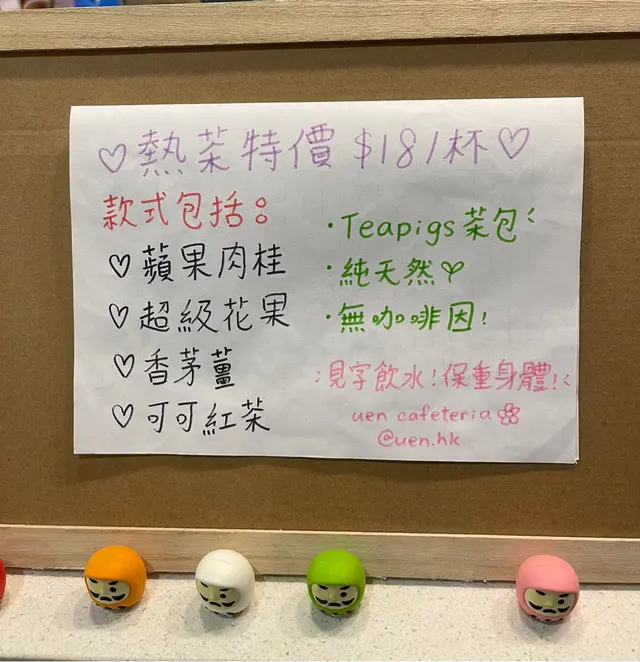 ♡熱茶特價 $18/杯♡
款式包括：
♡蘋果肉桂
♡超級花果
♡香茅薑
♡可可紅茶
·Teapigs茶包
·純天然
·無咖啡因!
見字飲水!保重身體!
uen cafeteria
@uen.hk